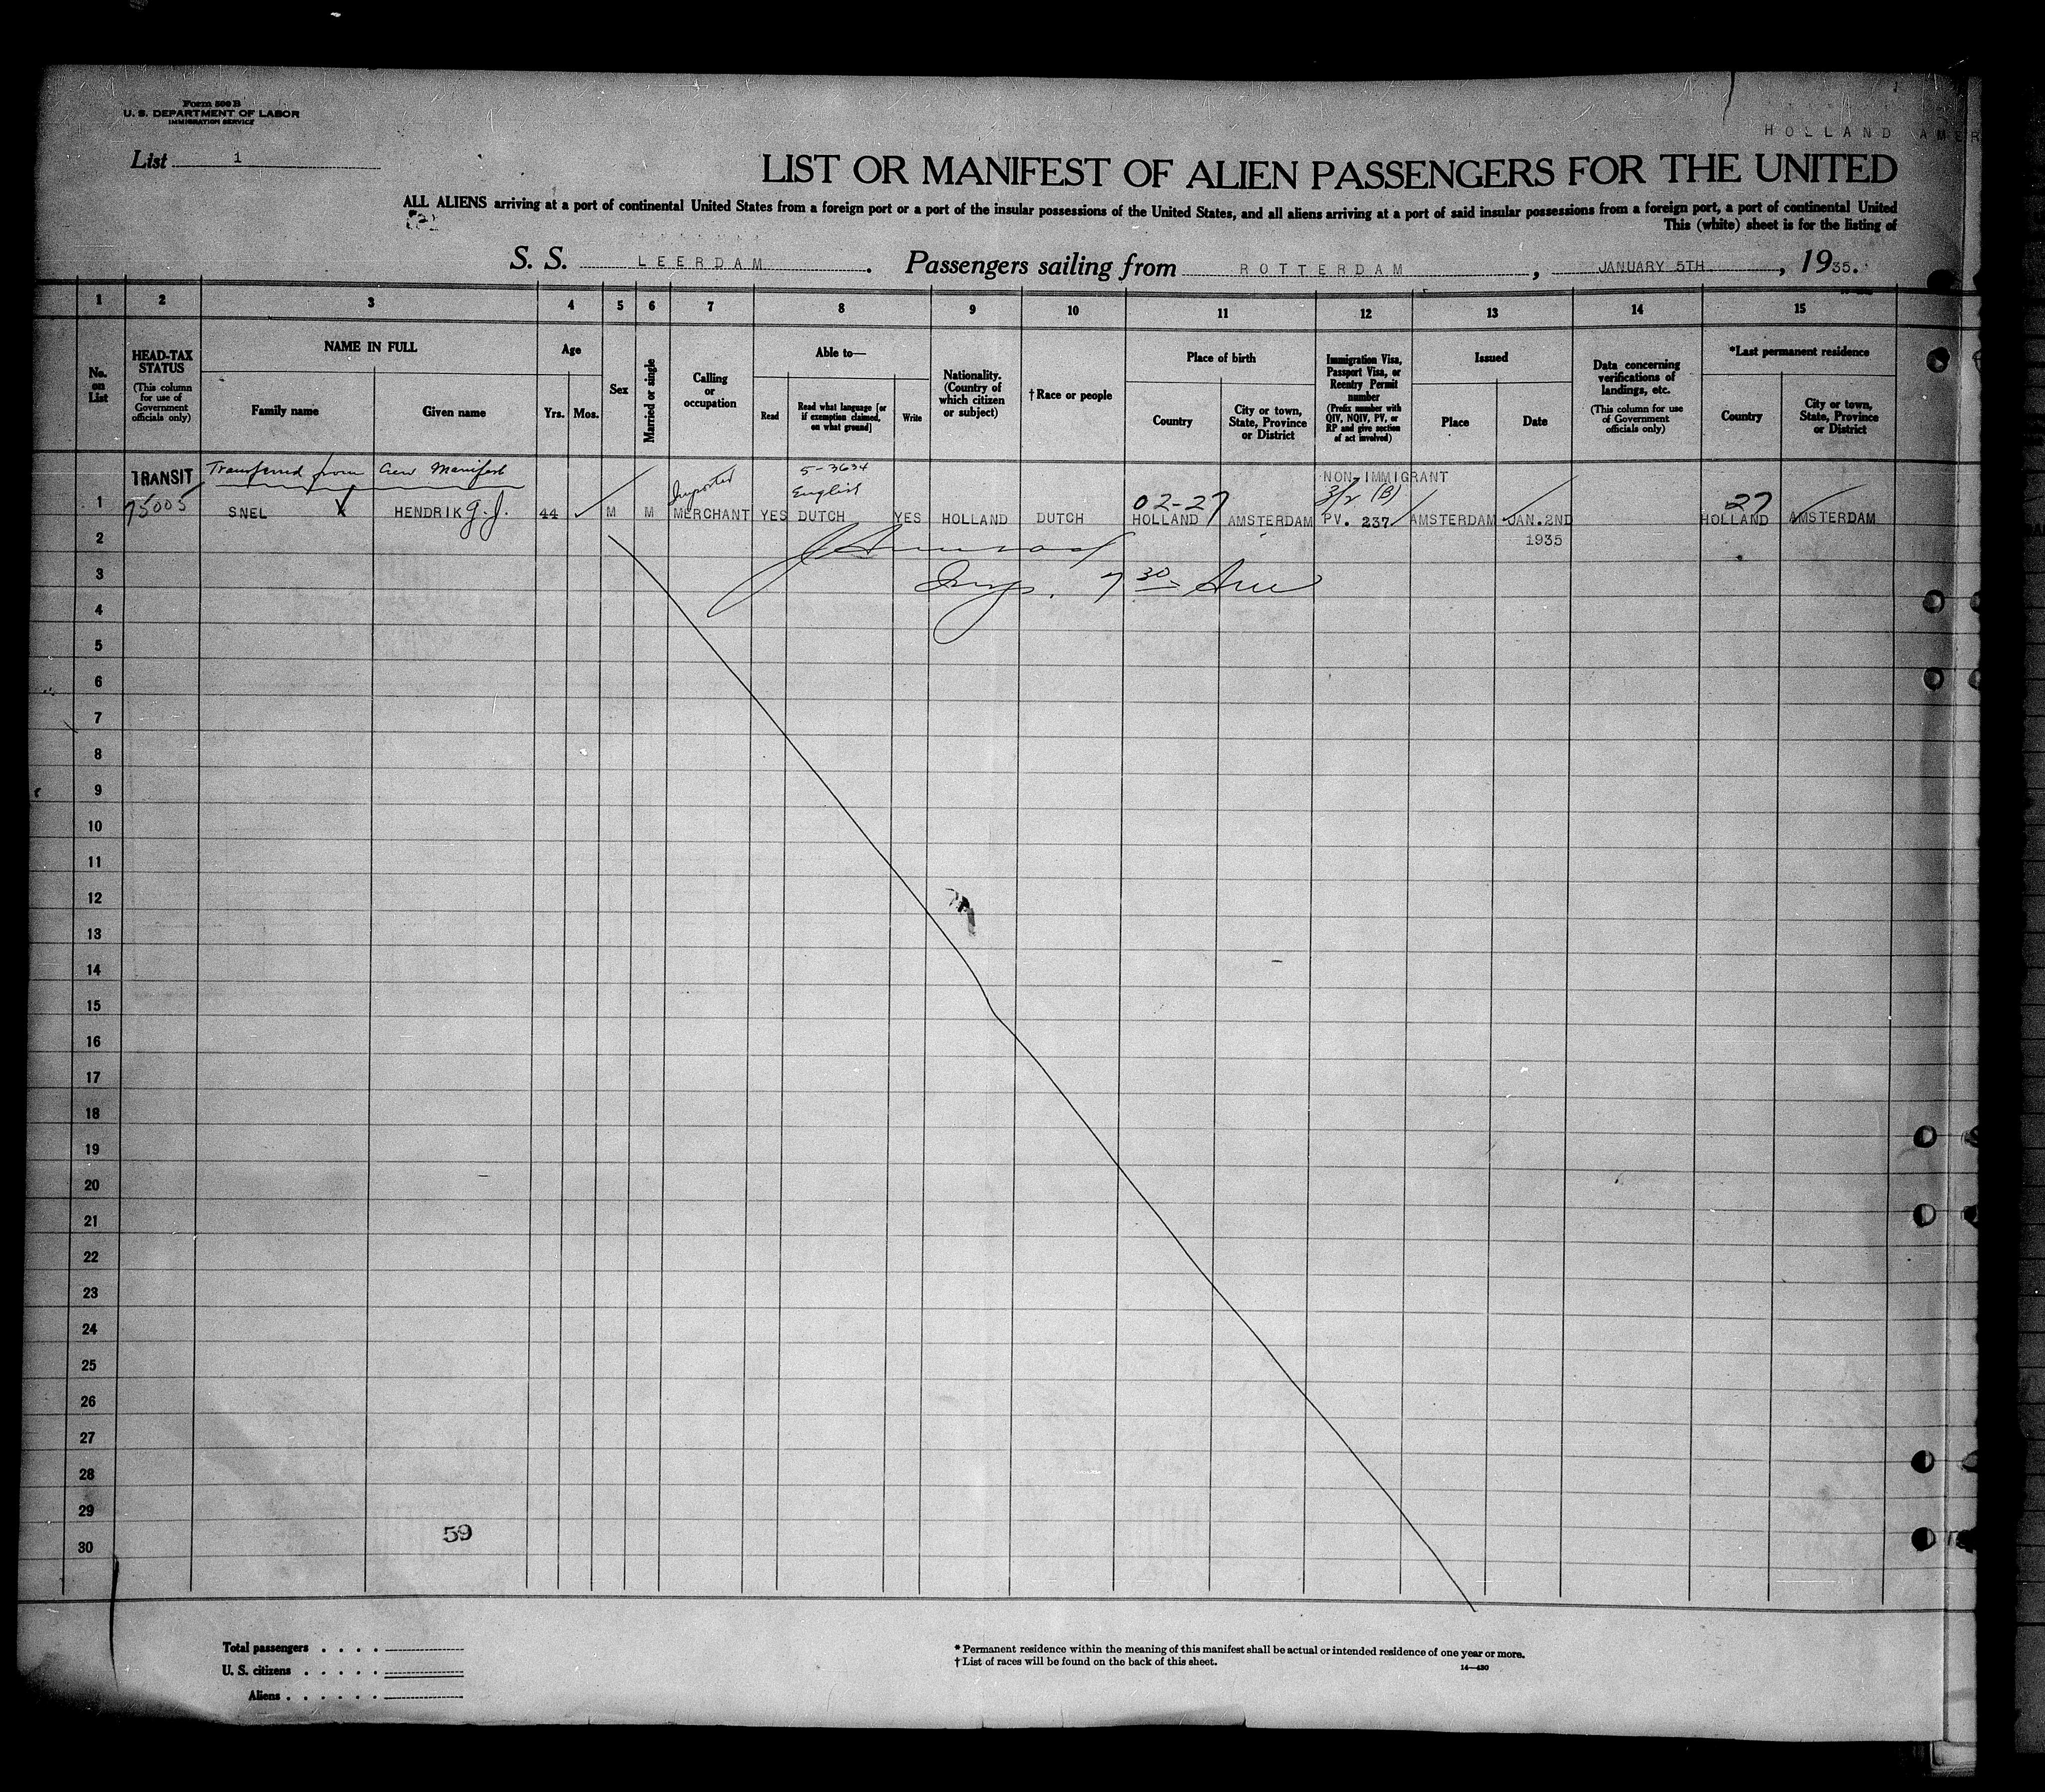 Form 500 B
U. S. DEPARTMENT OF LABOR
IMMIGRATION SERVICE
HOLLAND AMER
List 1
LIST OR MANIFEST OF ALIEN PASSENGERS FOR THE UNITED
ALL ALIENS arriving at a port of continental United States from a foreign port or a port of the insular possessions of the United States, and all aliens arriving at a port of said insular possessions from a foreign port, a port of continental United
This (white) sheet is for the listing of
S. S. LEERDAM. Passengers sailing from ROTTERDAM, JANUARY 5TH, 1935.
1 2 3 4 5 6 7 8 9 10 11 12 13 14 15
No. on List
HEAD-TAX STATUS
(This column for use of Government officials only)
NAME IN FULL
Family name
Given name
Age
Yrs. Mos.
Sex
Married or single
Calling or occupation
Able to—
Read
Read what language [or if exemption claimed, on what ground]
Write
Nationality. (Country of which citizen or subject)
† Race or people
Place of birth
Country
City or town, State, Province or District
Immigration Visa, Passport Visa, or Reentry Permit number
(Prefix number with QIV, NQIV, PV, or RP and give section of act involved)
Issued
Place
Date
Data concerning verifications of landings, etc.
(This column for use of Government officials only)
*Last permanent residence
Country
City or town, State, Province or District
TRANSIT Transferred from Crew Manifest 5-3634 NON-IMMIGRANT
Imported English 02-27 3/2 (B) 27
1 75005 SNEL X HENDRIK G. J. 44 M M MERCHANT YES DUTCH YES HOLLAND DUTCH HOLLAND AMSTERDAM PV. 237 AMSTERDAM JAN. 2ND HOLLAND AMSTERDAM
1935
2
3 Insp. 7 30
4
5
6
7
8
9
10
11
12
13
14
15
16
17
18
19
20
21
22
23
24
25
26
27
28
29
59
30
Total passengers . . . .
U. S. citizens . . . . .
Aliens . . . . . .
* Permanent residence within the meaning of this manifest shall be actual or intended residence of one year or more.
† List of races will be found on the back of this sheet.
14—430